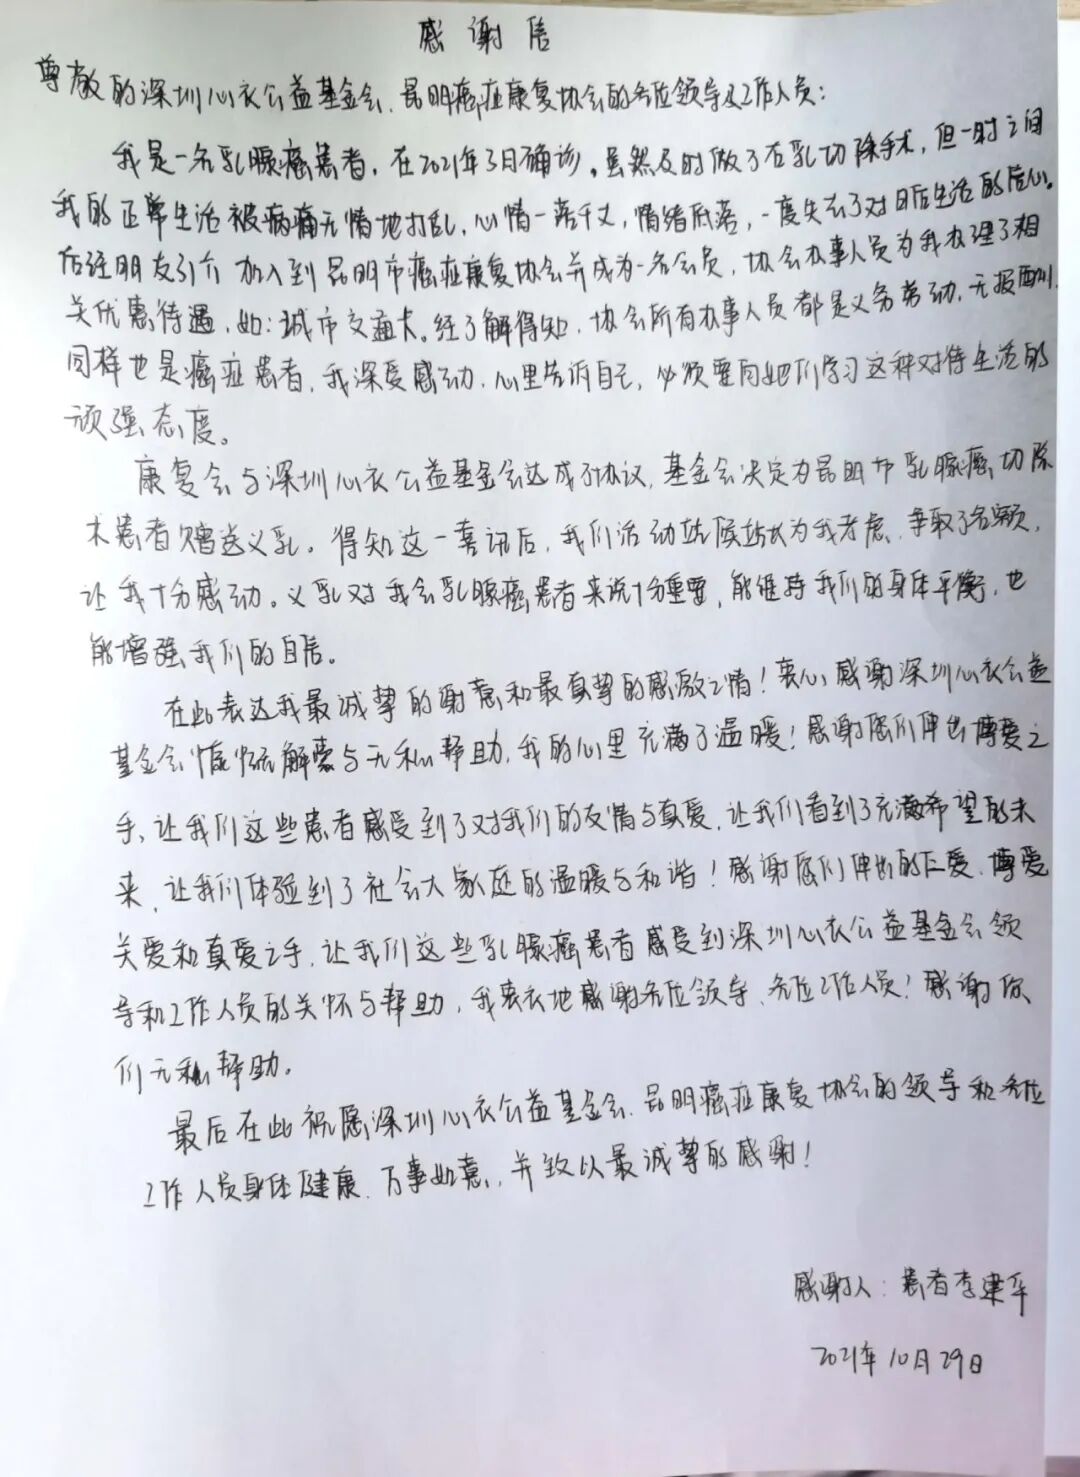 感谢信
尊敬的深圳心衣公益基金会、昆明癌症康复协会的各位领导及工作人员：
我是一名乳腺癌患者，在2021年3月确诊。虽然及时做了右乳切除手术，但一时之间
我的正常生活被病痛无情地打乱，心情一落千丈，情绪低落，一度失去了对日后生活的信心。
后经朋友引介加入到昆明市癌症康复协会并成为一名会员，协会办事人员为我办理了相
关优惠待遇，如：城市交通卡。经了解得知，协会所有办事人员都是义务劳动，无报酬，
同样也是癌症患者，我深受感动，心里告诉自己，必须要向她们学习这种对待生活的
顽强态度。
康复会与深圳心衣公益基金会达成了协议，基金会决定为昆明市乳腺癌切除
术患者赠送义乳。得知这一喜讯后，我们活动站候站长为我考虑，争取了名额，
让我十分感动。义乳对我会乳腺癌患者来说十分重要，能维持我们的身体平衡，也
能增强我们的自信。
在此表达我最诚挚的谢意和最真挚的感激之情！衷心感谢深圳心衣公益
基金会慷慨解囊与无私帮助，我的心里充满了温暖！感谢您们伸出博爱之
手，让我们这些患者感受到了对我们的友情与真爱，让我们看到了充满希望的未
来，让我们体验到了社会大家庭的温暖与和谐！感谢您们伸出的仁爱、博爱
关爱和真爱之手，让我们这些乳腺癌患者感受到深圳心衣公益基金会领
导和工作人员的关怀与帮助，我衷衣地感谢各位领导、各位工作人员！感谢你
们无私帮助。
最后在此祝愿深圳心衣公益基金会、昆明癌症康复协会的领导和各位
工作人员身体健康、万事如意，并致以最诚挚的感谢！
感谢人：患者李建华
2021年10月29日